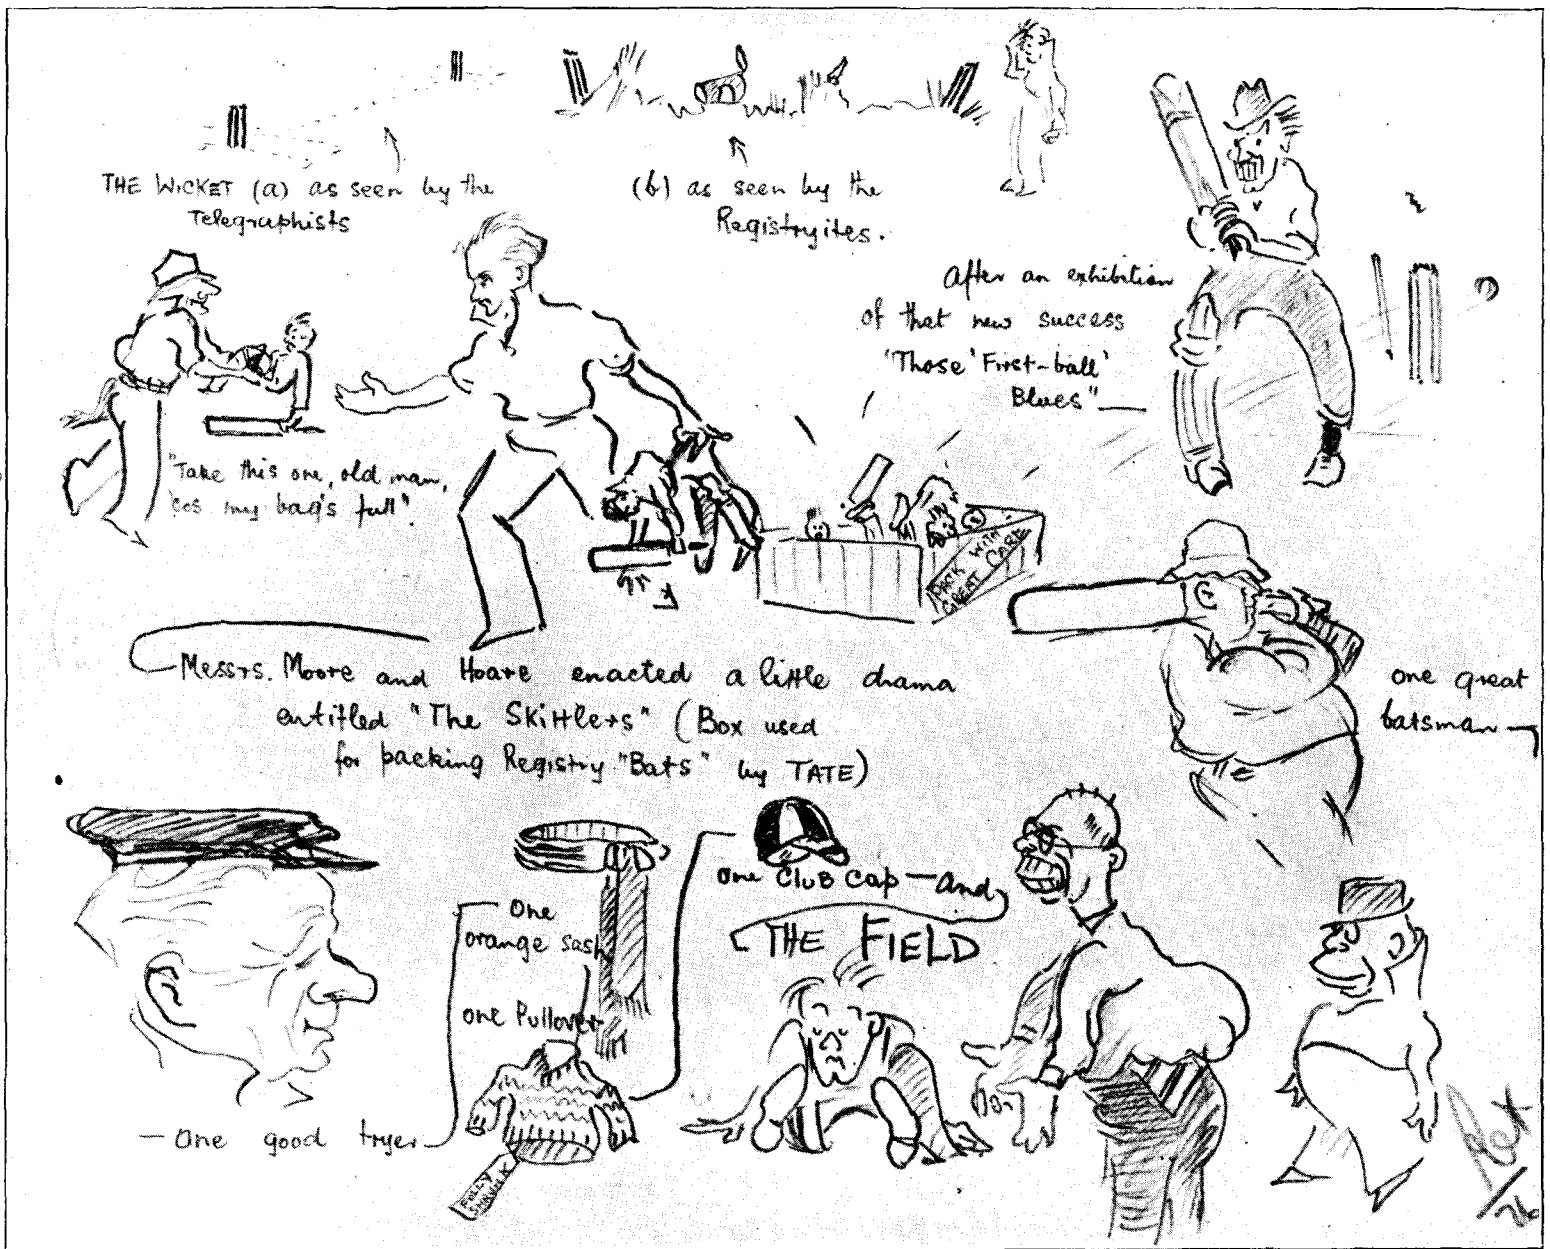 THE WICKET (a) as seen by the
Telegraphists
(b) as seen by the
Registryites.
After an exhibition
of that new success
'Those 'First-ball'
Blues"
"Take this one, old man,
'cos my bag's full".
PACK WITH
GREAT CARE
Messrs. Moore and Hoare enacted a little drama
entitled "The Skittlers" (Box used
for packing Registry "Bats" by TATE)
one great
batsman
— One good tryer
One
orange sash
one Pullover
FULLY
SHRUNK
one CLUB Cap — and
THE FIELD
Rex
/26